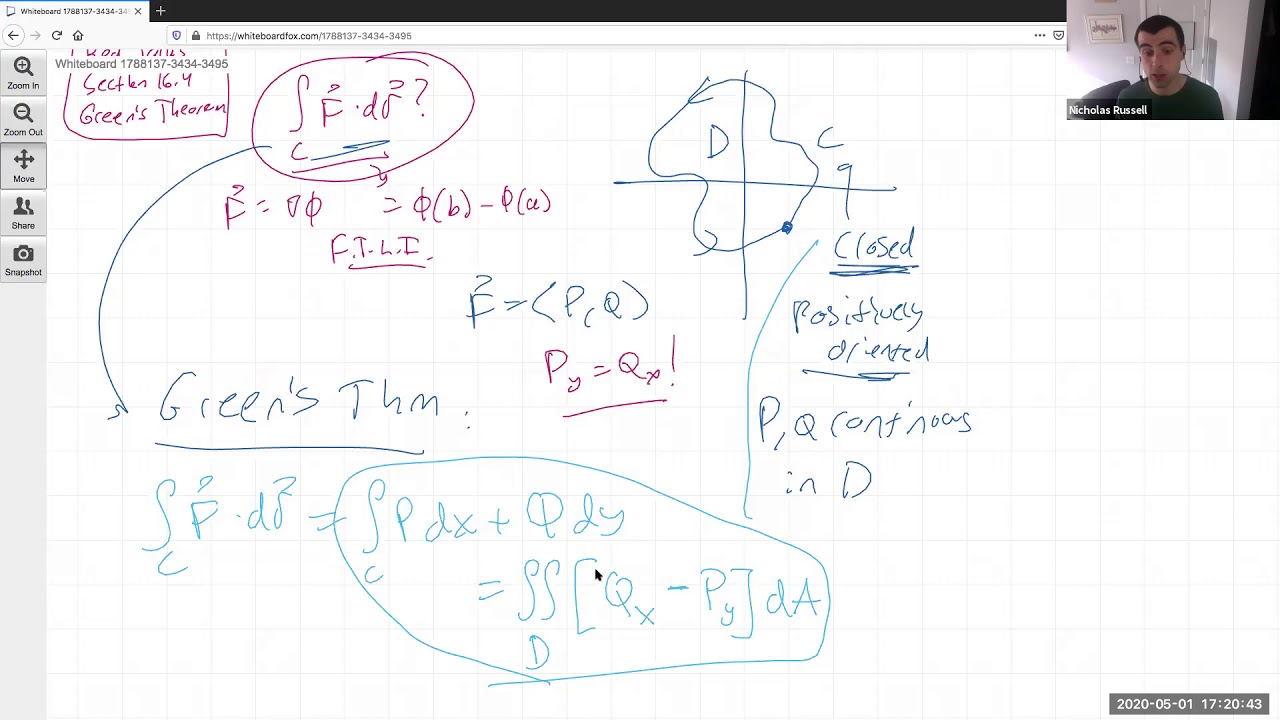 Whiteboard 1788137-3434-349
https://whiteboardfox.com/1788137-3434-3495
Whiteboard 1788137-3434-3495
Zoom In
Zoom Out
Move
Share
Snapshot
Nicholas Russell
Section 16.4
Green's Theorem
∫_C F⃗ · dr⃗ ?
F⃗ = ∇ϕ = ϕ(b) - ϕ(a)
F.T.L.I.
D
C
Closed
Positively
oriented
F⃗ = ⟨P, Q⟩
P_y = Q_x !
P, Q continous
in D
Green's Thm :
∫_C F⃗ · dr⃗ = ∫_C P dx + Q dy
= ∬_D [Q_x - P_y] dA
2020-05-01 17:20:43